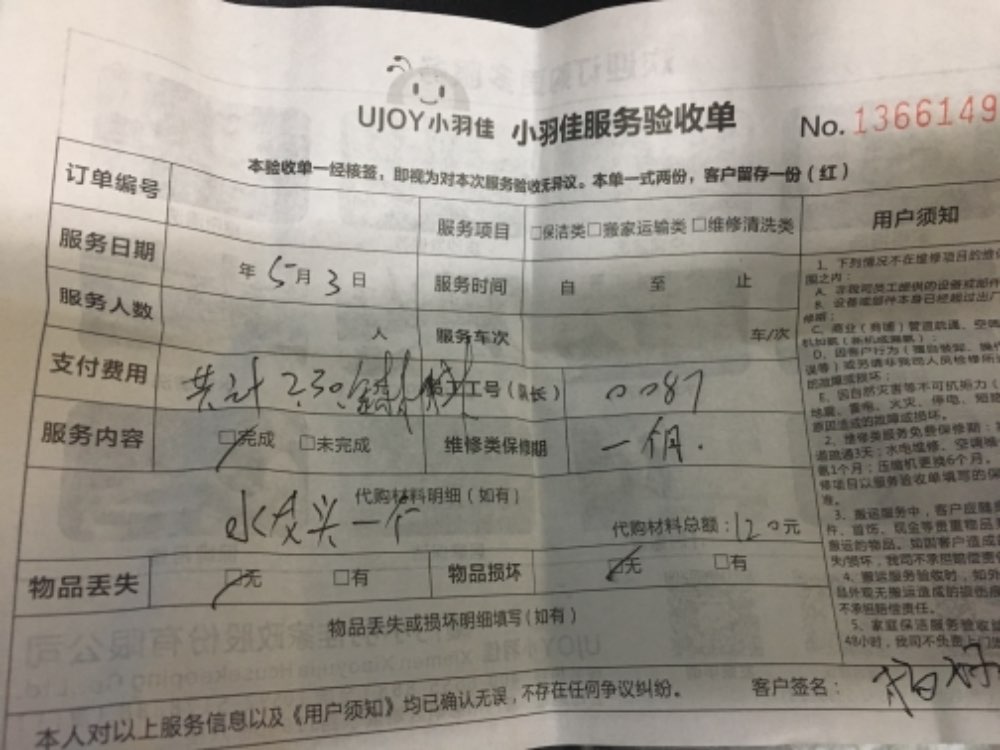 UJOY小羽佳 小羽佳服务验收单 No.1366149
本验收单一经核签，即视为对本次服务验收无异议。本单一式两份，客户留存一份（红）
订单编号
服务项目 □保洁类□搬家运输类□维修清洗类
用户须知
服务日期 年5月3日 服务时间 自 至 止
服务人数 人 服务车次 车/次
支付费用 共计230 员工工号（队长） 0087
服务内容 □完成 □未完成 维修类保修期 一个月.
代购材料明细（如有）
水龙头一个 代购材料总额：120元
物品丢失 □无 □有 物品损坏 □无 □有
物品丢失或损坏明细填写（如有）
本人对以上服务信息以及《用户须知》均已确认无误，不存在任何争议纠纷。 客户签名：
1、下列情况不在维修项目的维
围之内：
A、非我司员工提供的设备或部件
B、设备或部件本身已经超过出厂
修期；
C、商业（商铺）管道疏通、空调
D、因客户行为（擅自装卸、操作
误等）或另请非我司人员检修所
的故障或损坏；
E、因自然灾害等不可抗拒力（
地震、雷电、火灾、停电、短路
原因造成的故障或损坏。
2、维修类服务免费保修期：
道疏通3天；水电维修、空调
氨1个月；压缩机更换6个月，
修项目以服务验收单填写的保
准。
3、搬运服务中，客户应随
件、首饰、现金等贵重物品
搬运的物品。如因客户造成
失/损坏，我司不承担赔偿责
4、搬运服务验收时，如外
品外观无搬运造成的损伤
不承担赔偿责任。
5、家庭保洁服务验收
48小时，我司不负责上门